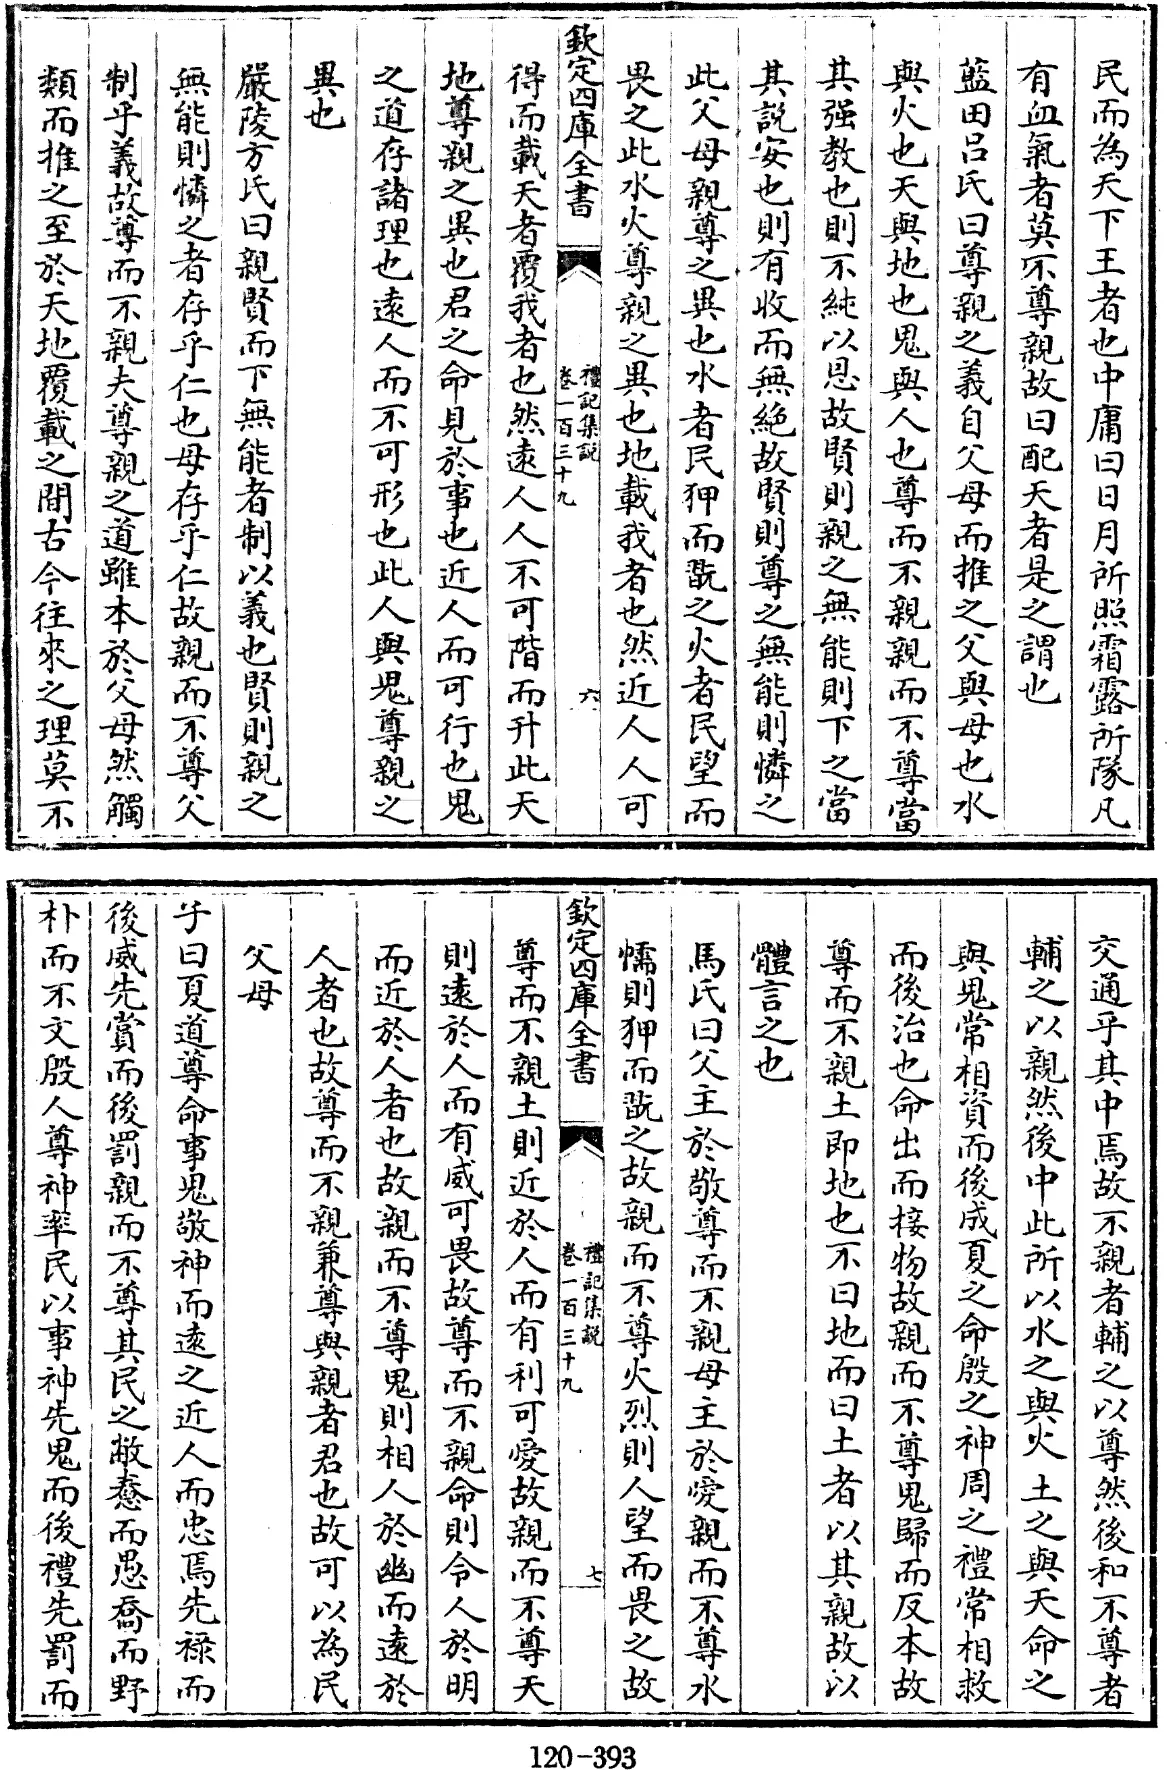 民而為天下王者也中庸曰日月所照霜露所隊凡
有血氣者莫不尊親故曰配天者是之謂也
藍田吕氏曰尊親之義自父母而推之父與母也水
與火也天與地也鬼與人也尊而不親親而不尊當
其强教也則不純以恩故賢則親之無能則下之當
其說安也則有收而無絶故賢則尊之無能則憐之
此父母親尊之異也水者民狎而翫之火者民望而
畏之此水火尊親之異也地載我者也然近人人可
欽定四庫全書
禮記集説
卷一百三十九
六
得而載天者覆我者也然逺人人不可階而升此天
地尊親之異也君之命見於事也近人而可行也鬼
之道存諸理也逺人而不可形也此人與鬼尊親之
異也
嚴陵方氏曰親賢而下無能者制以義也賢則親之
無能則憐之者存乎仁也母存乎仁故親而不尊父
制乎義故尊而不親夫尊親之道雖本於父母然觸
類而推之至於天地覆載之間古今往來之理莫不
交通乎其中焉故不親者輔之以尊然後和不尊者
輔之以親然後中此所以水之與火土之與天命之
與鬼常相資而後成夏之命殷之神周之禮常相救
而後治也命出而接物故親而不尊鬼歸而反本故
尊而不親土即地也不曰地而曰土者以其親故以
體言之也
馬氏曰父主於敬尊而不親母主於愛親而不尊水
懦則狎而翫之故親而不尊火烈則人望而畏之故
欽定四庫全書
禮記集説
卷一百三十九
七
尊而不親土則近於人而有利可愛故親而不尊天
則逺於人而有威可畏故尊而不親命則令人於明
而近於人者也故親而不尊鬼則相人於幽而逺於
人者也故尊而不親兼尊與親者君也故可以為民
父母
子曰夏道尊命事鬼敬神而逺之近人而忠焉先禄而
後威先賞而後罰親而不尊其民之敝惷而愚喬而野
朴而不文殷人尊神率民以事神先鬼而後禮先罰而
120-393